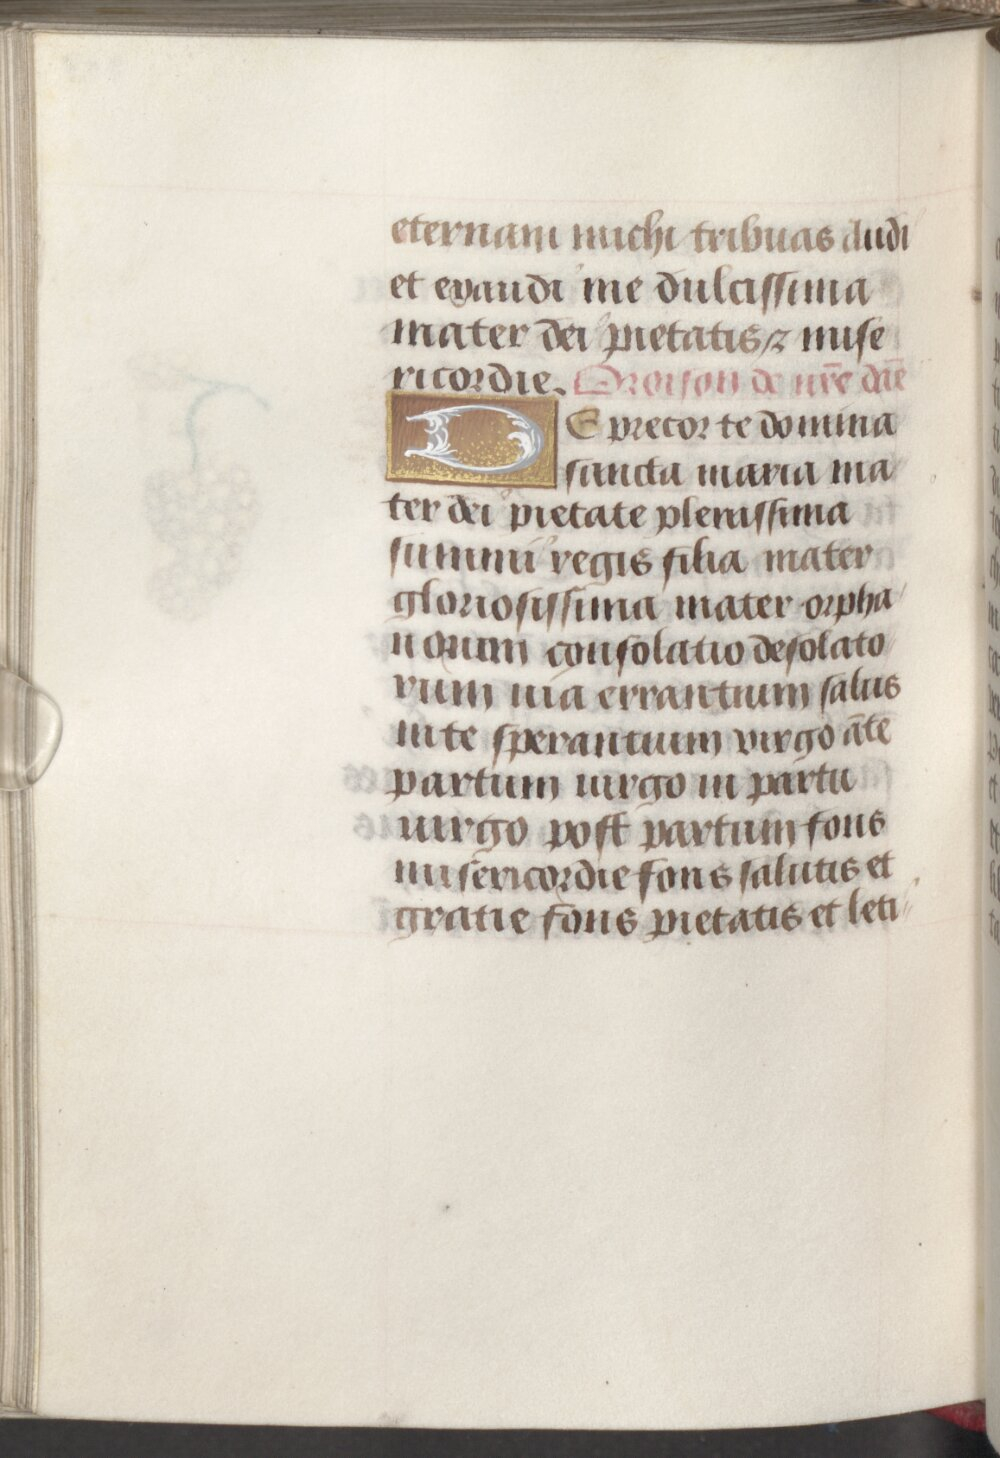 eternam michi tribuas Audi
et exaudi me dulcissima
mater dei pietatis ⁊ mise
ricordie. Oroison de nr̄e dāe
OE precor te domina
sancta maria ma
ter dei pietate plenissima
summi regis filia mater
gloriosissima mater orpha
norum consolatio desolato
rum uia errantium salus
in te sperantium virgo āte
partum uirgo in partu
uirgo post partum fons
misericordie fons salutis et
gratie fons pietatis et leti